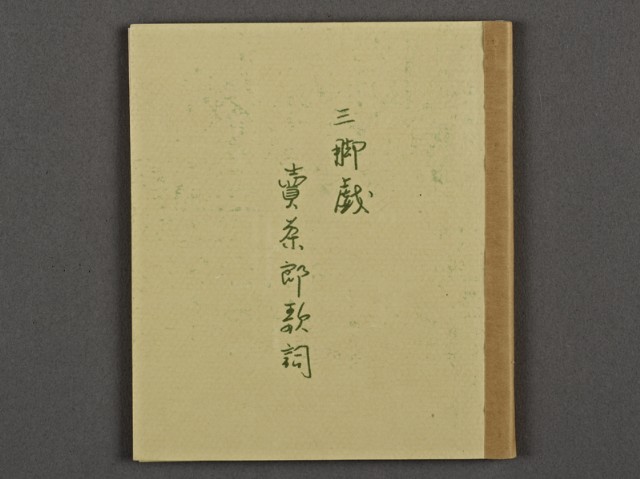 三脚戯
賣茶郎歌詞